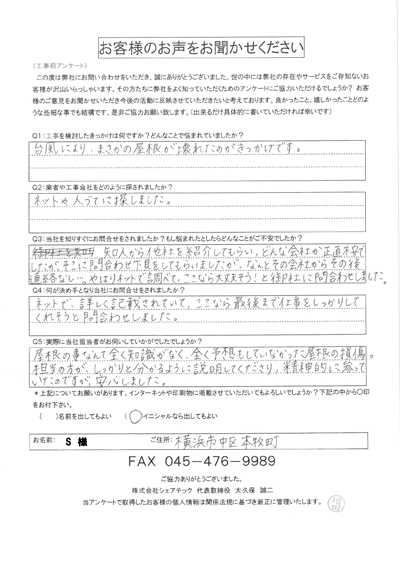 お客様のお声をお聞かせください
〔工事前アンケート〕
この度は弊社にお問い合わせをいただき、誠にありがとうございました。世の中には弊社の存在やサービスをご存知ないお
客様が沢山いらっしゃいます。その方たちに弊社をよく知っていただくためのアンケートにご協力いただけるでしょうか？ お客
様のご意見をお聞かせいただき今後の活動に反映させていただきたいと考えております。良かったこと、嬉しかったことどのよう
な些細な事でも結構です。是非ご協力お願い致します。（出来るだけ具体的に書いていただければ幸いです）
Q1:工事を検討したきっかけは何ですか？どんなことで悩まれていましたか？
台風により、まさかの屋根が壊れたのがきっかけです。
Q2:業者や工事会社をどのように探されましたか？
ネットや人づてに探しました。
Q3:当社を知りすぐにお問合せをされましたか？もし悩まれたとしたらどんなことがご不安でしたか？
知人から他社を紹介してもらい、どんな会社か正直不安で
したが、そこに問合わせ下見をしてもらいましたが、なんとその会社からその後
連絡なし…やはりネットで調べて、ここなら大丈夫そう！と御社に問合わせしました。
Q4:何が決め手となり当社にお問合せをされましたか？
ネットで、詳しく記載されていて、ここなら最後まで仕事をしっかりして
くれそうと問合わせしました。
Q5:実際に当社担当者がお伺いしていかがでしたでしょうか？
屋根の事なんて全く知識がなく、全く予想もしていなかった屋根の損傷。
担当の方が、しっかりと分かるように説明してくださり、精神的に参って
いたのですが、安心しました。
＊上記についてお願いがあります。インターネットや印刷物に掲載させていただいてもよろしいでしょうか？下記の中から〇印
をお付け下さい。
（　）名前を出してもよい （〇）イニシャルなら出してもよい
お名前: S 様 ご住所: 横浜市中区本牧町
FAX 045-476-9989
ご協力ありがとうございました。
株式会社シェアテック 代表取締役 大久保 誠二
当アンケートで取得したお客様の個人情報は関係法規に基づき厳正に管理いたします。